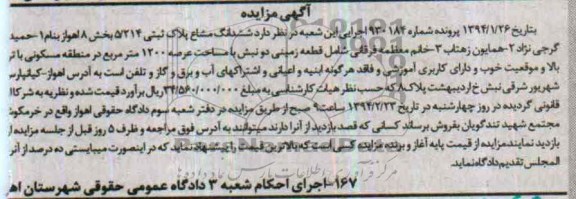 آگهی مزایده
بتاریخ ۱۳۹۴/۱/۲۶ پرونده شماره ۹۳۰۱۸۴ اجرایی این شعبه در نظر دارد ششدانگ مشاع پلاک ثبتی ۵۲۱۴ بخش ۸ اهواز بنام ۱-حمید
گرجی نژاد ۲-همایون زهتاب ۳-خانم معظمه فرقانی شامل قطعه زمینی دو نبش با مساحت عرصه ۱۲۰۰ متر مربع در منطقه مسکونی با
بالا و موقعیت خوب و دارای کاربری آموزشی و فاقد هرگونه ابنیه و اعیانی و اشتراکهای آب و برق و گاز و تلفن است به آدرس اهواز-کیانپارس
شهریور شرقی نبش خ اردیبهشت پلاک ۸ که حسب نظر هیات کارشناسی به مبلغ ۳۴/۵۶۰/۰۰۰/۰۰۰ ریال برآورد قیمت شده و نظریه به شرکا
قانونی گردیده در روز چهارشنبه در تاریخ ۱۳۹۴/۲/۲۳ ساعت ۹ صبح از طریق مزایده در دفتر شعبه سوم دادگاه حقوقی اهواز واقع در خرمکوشک
مجتمع شهید تندگویان بفروش برساند کسانی که قصد بازدید از آنرا دارند میتوانند به آدرس فوق مراجعه و ظرف ۵ روز قبل از جلسه مزایده از
بازدید نمایند مزایده از قیمت پایه آغاز و برنده مزایده کسی است که بالاترین قیمت را پیشنهاد نماید که در اینصورت میبایستی ده درصد از آنرا
المجلس تقدیم دادگاه نماید.
۱۶۷-اجرای احکام شعبه ۳ دادگاه عمومی حقوقی شهرستان